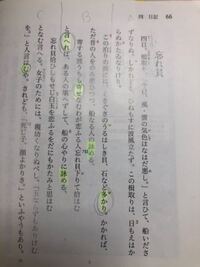 四 日記 66
忘れ貝
四日。楫取り、「今日、風、雲の気色はなはだ悪し。」と言ひて、船いださ
ずなりぬ。しかれども、ひねもすに波風立たず。この楫取りは、日もえはか
らぬかたゐなりけり。
この泊の浜には、くさぐさのうるはしき貝、石など多かり。かかれば、
ただ昔の人をのみ恋ひつつ、船なる人の詠める、
寄する波うちも寄せなむわが恋ふる人忘れ貝下りて拾はむ
と言へれば、ある人の堪へずして、船の心やりに詠める、
忘れ貝拾ひしもせじ白玉を恋ふるをだにもかたみと思はむ
となむ言へる。女子のためには、親幼くなりぬべし。「玉ならずもありけむ
を。」と人言はむや。されども、「死じ子、顔よかりき。」といふやうもあり。